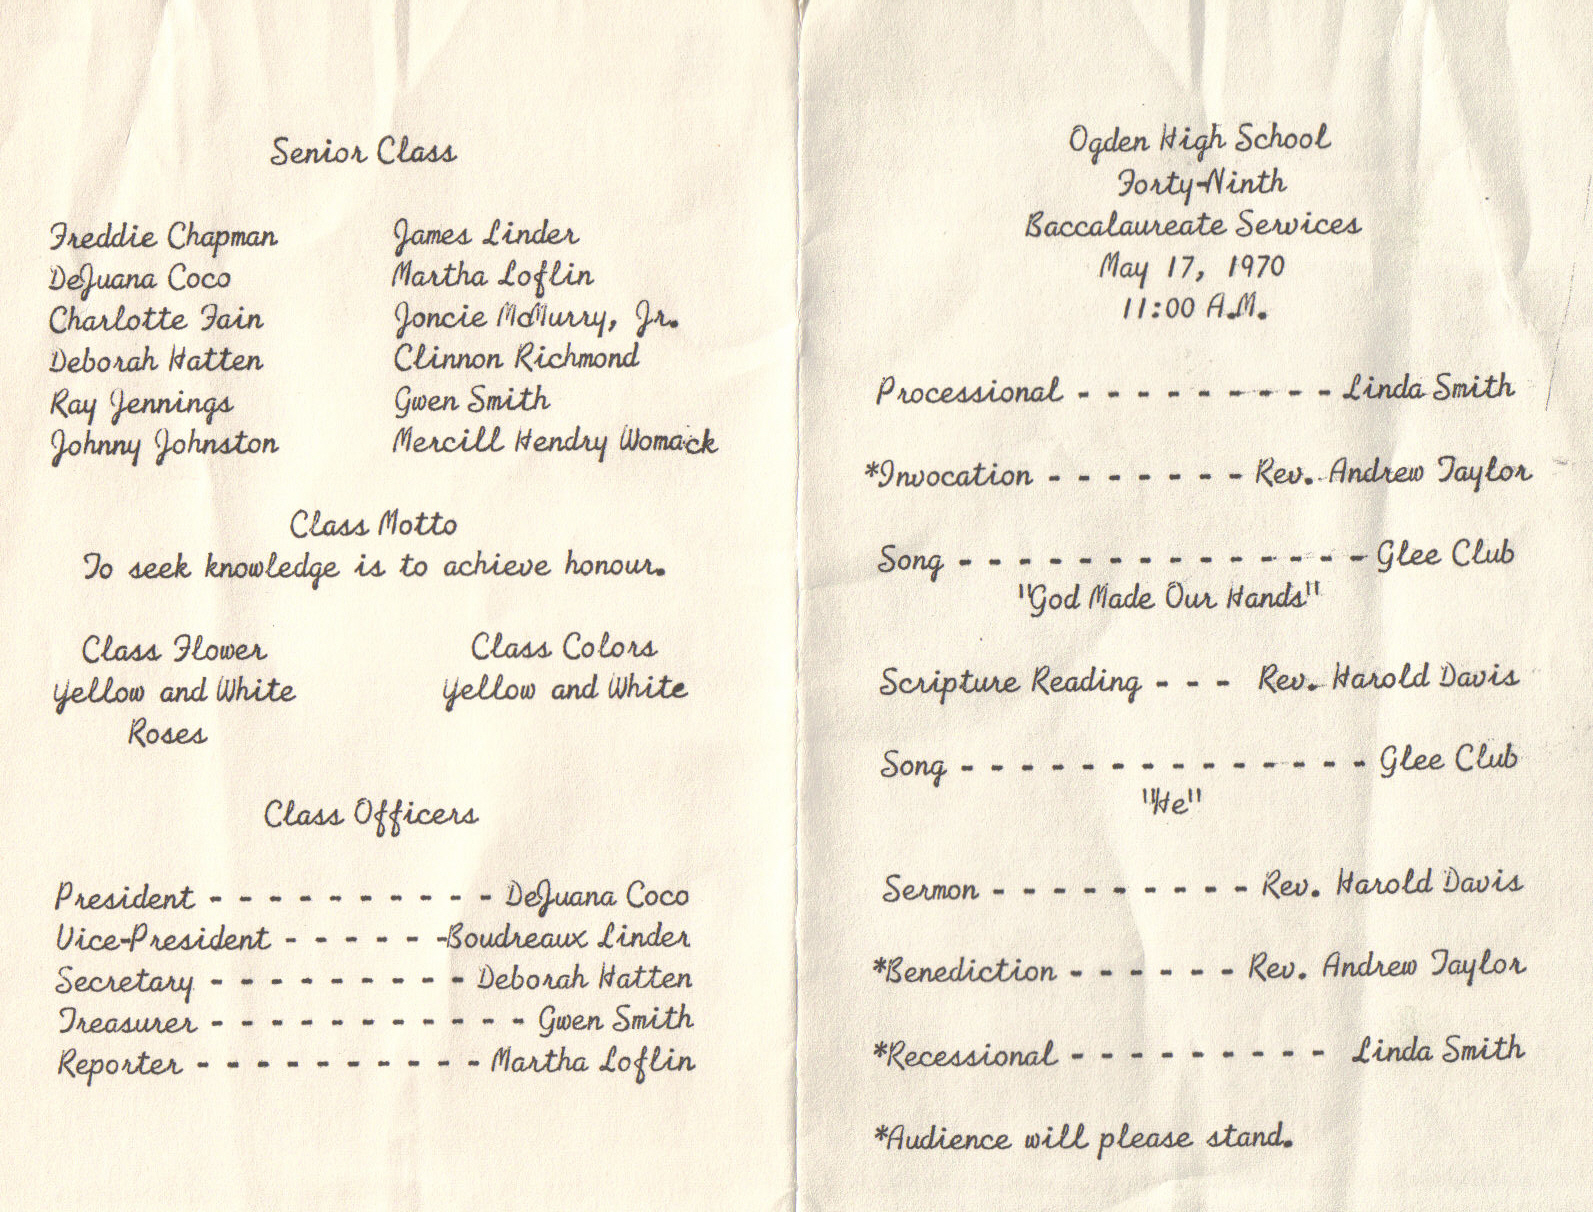 Senior Class
Freddie Chapman James Linder
DeJuana Coco Martha Loflin
Charlotte Fain Joncie McMurry, Jr.
Deborah Hatten Clinnon Richmond
Ray Jennings Gwen Smith
Johnny Johnston Mercill Hendry Womack
Class Motto
To seek knowledge is to achieve honour.
Class Flower Class Colors
Yellow and White Yellow and White
Roses
Class Officers
President - - - - - - - - - - DeJuana Coco
Vice-President - - - - - -Boudreaux Linder
Secretary - - - - - - - - - Deborah Hatten
Treasurer - - - - - - - - - - - Gwen Smith
Reporter - - - - - - - - - - Martha Loflin
Ogden High School
Forty-Ninth
Baccalaureate Services
May 17, 1970
11:00 A.M.
Processional - - - - - - - - - Linda Smith
*Invocation - - - - - - - Rev. Andrew Taylor
Song - - - - - - - - - - - - - - Glee Club
"God Made Our Hands"
Scripture Reading - - - Rev. Harold Davis
Song - - - - - - - - - - - - - - Glee Club
"He"
Sermon - - - - - - - - - Rev. Harold Davis
*Benediction - - - - - - Rev. Andrew Taylor
*Recessional - - - - - - - - - Linda Smith
*Audience will please stand.